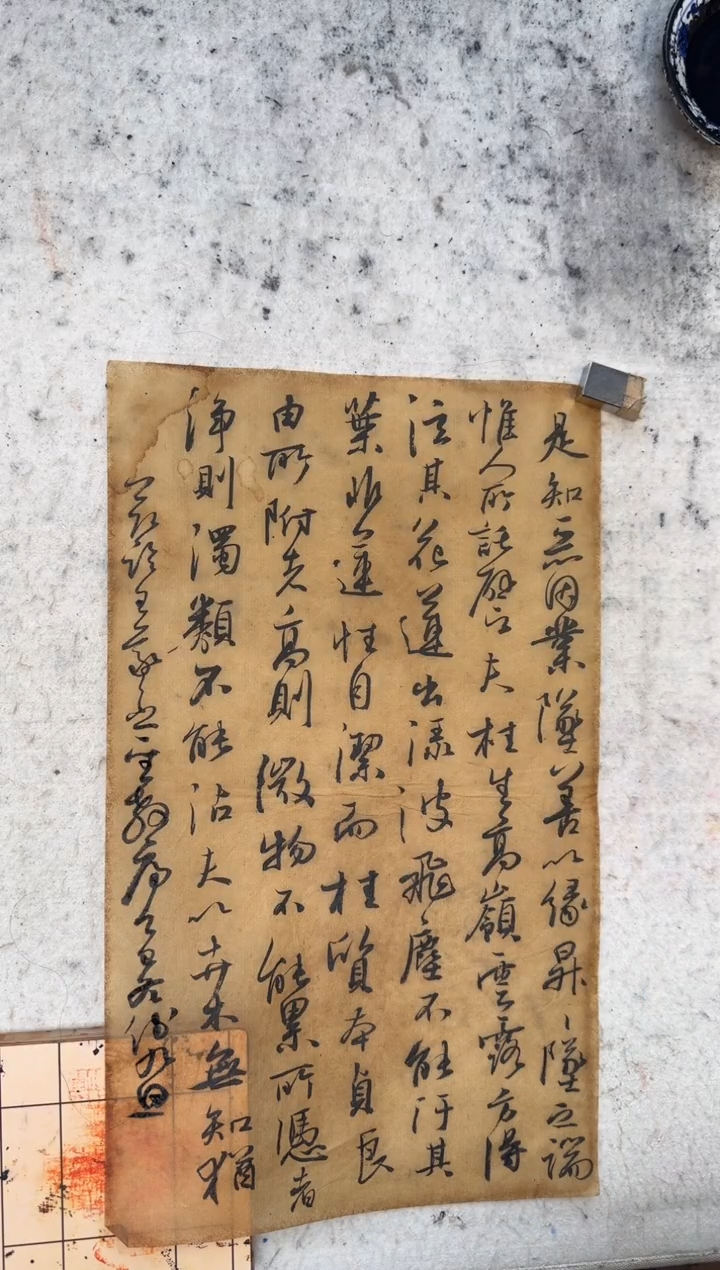 是知惡因業墜善以緣昇〻墜之端
惟人所託譬夫桂生高嶺雲露方得
泫其花蓮出淥波飛塵不能汙其
葉非蓮性自潔而桂質本貞良
由所附者高則微物不能累所憑者
淨則濁類不能沾夫以卉木無知猶
臨王羲之聖教序